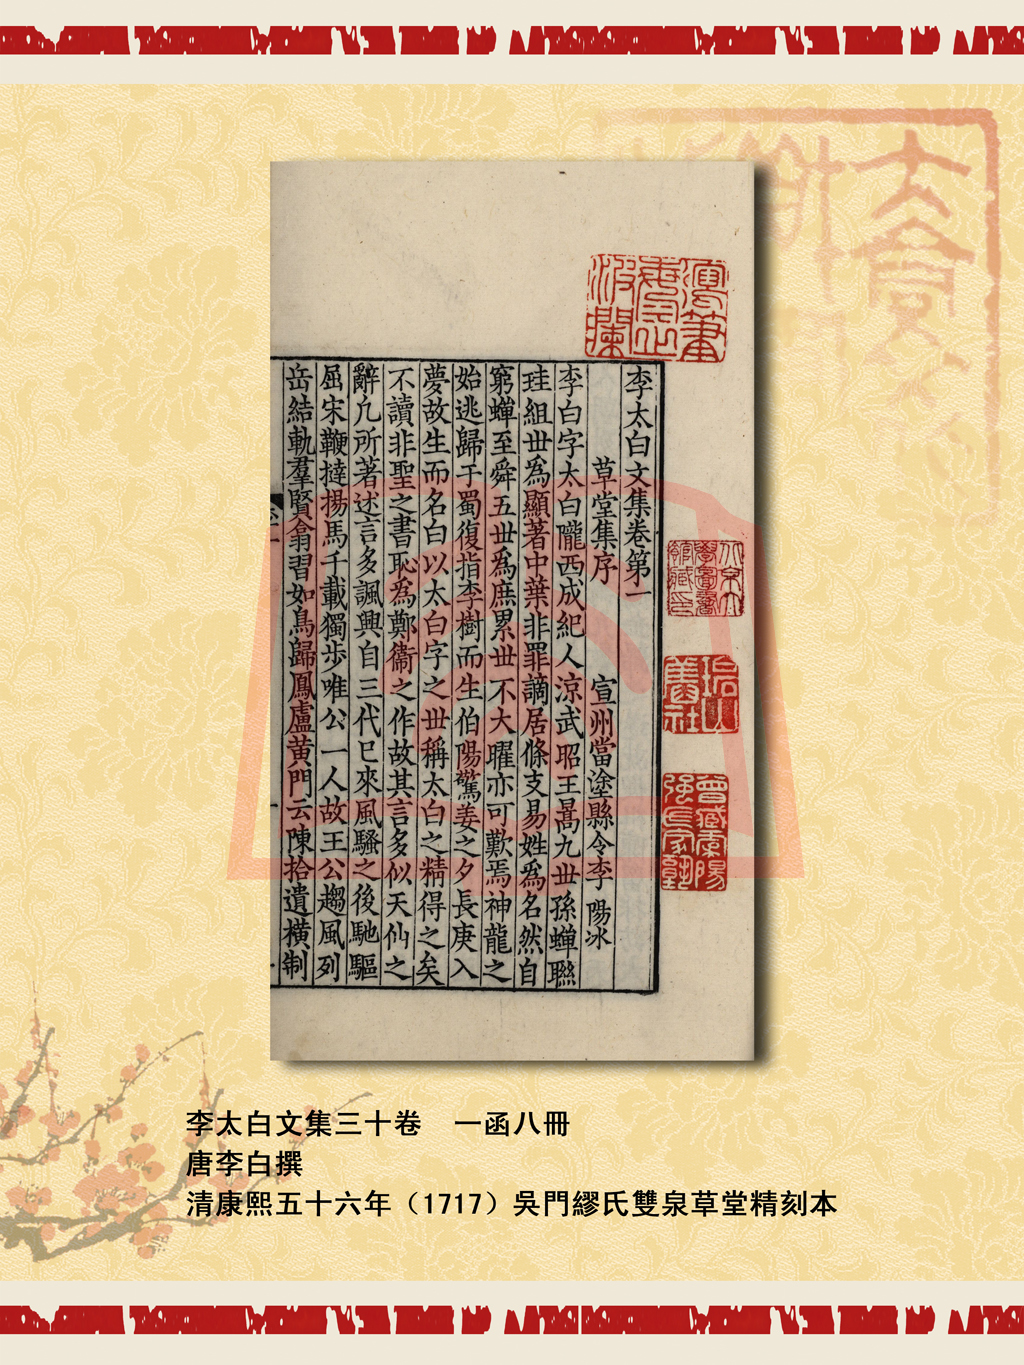 李太白文集卷第一
草堂集序 宣州當塗縣令李陽冰
李白字太白隴西成紀人涼武昭王暠九世孫蟬聯
珪組世爲顯著中葉非罪謫居條支易姓爲名然自
窮蟬至舜五世爲庶累世不大曜亦可歎焉神龍之
始逃歸于蜀復指李樹而生伯陽驚姜之夕長庚入
夢故生而名白以太白字之世稱太白之精得之矣
不讀非聖之書恥爲鄭衞之作故其言多似天仙之
辭凢所著述言多諷興自三代已來風騷之後馳驅
屈宋鞭撻揚馬千載獨步唯公一人故王公趨風列
岳結軌羣賢翕習如鳥歸鳳盧黄門云陳拾遺橫制
李太白文集三十卷 一函八冊
唐李白撰
清康熙五十六年（1717）吳門繆氏雙泉草堂精刻本